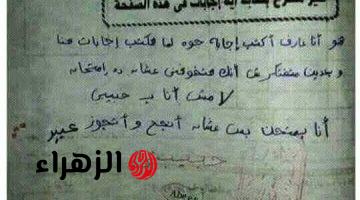 غير مصرح بكتابة أية إجابات في هذه الصفحة
هو أنا عارف أكتب إجابة جوه لما هكتب إجابات هنا
وبعدين متفتكرش أنك هتخوفني عشان ده إمتحان
لا مش أنا يا حبيبي
أنا بمتحن بس عشان أنجح وأتجوز عبير
حبيبتي
الزهراء